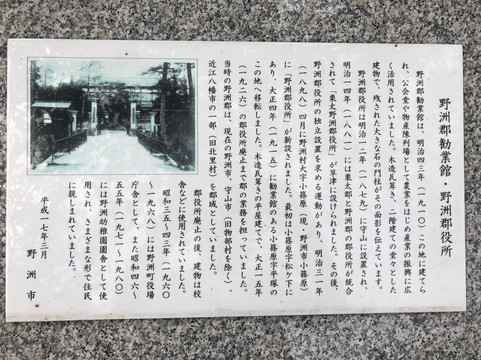 野洲郡勧業館・野洲郡役所
野洲郡勧業館は、明治四三年（一九一〇）この地に建てら
れ、公会堂や物産陳列場として農業をはじめ産業の振興に広
く活用されていました。木造瓦葺き、二階建ての堂々とした
建物で、残された大きな石の門柱がその面影を伝えています。
野洲郡役所は明治一二年（一八七九）に守山に設置され、
明治一四年（一八八一）には栗太郡と野洲郡の郡役所が統合
されて「栗太野洲郡役所」が草津に設けられました。その後、
野洲郡役所の独立設置を求める運動があり、明治三一年
（一八九八）四月に野洲村大字小篠原（現・野洲市小篠原）
に「野洲郡役所」が新設されました。最初は小篠原字松ケ下に
あり、大正四年（一九一五）に勧業館のある小篠原字平塚の
この地へ移転しました。木造瓦葺きの平屋建てで、大正一五年
（一九二六）の郡役所廃止まで郡の業務を担っていました。
当時の野洲郡は、現在の野洲市、守山市（旧物部村を除く）、
近江八幡市の一部（旧北里村）を郡域としていました。
郡役所廃止の後、建物は校
舎などに使用されていました。
昭和三五〜四三年（一九六〇
〜一九六八）には野洲町役場
庁舎として、また昭和四六〜
五五年（一九七一〜一九八〇）
には野洲幼稚園園舎として使
用され、さまざまな形で住民
に親しまれていました。
平成一七年三月
野洲市